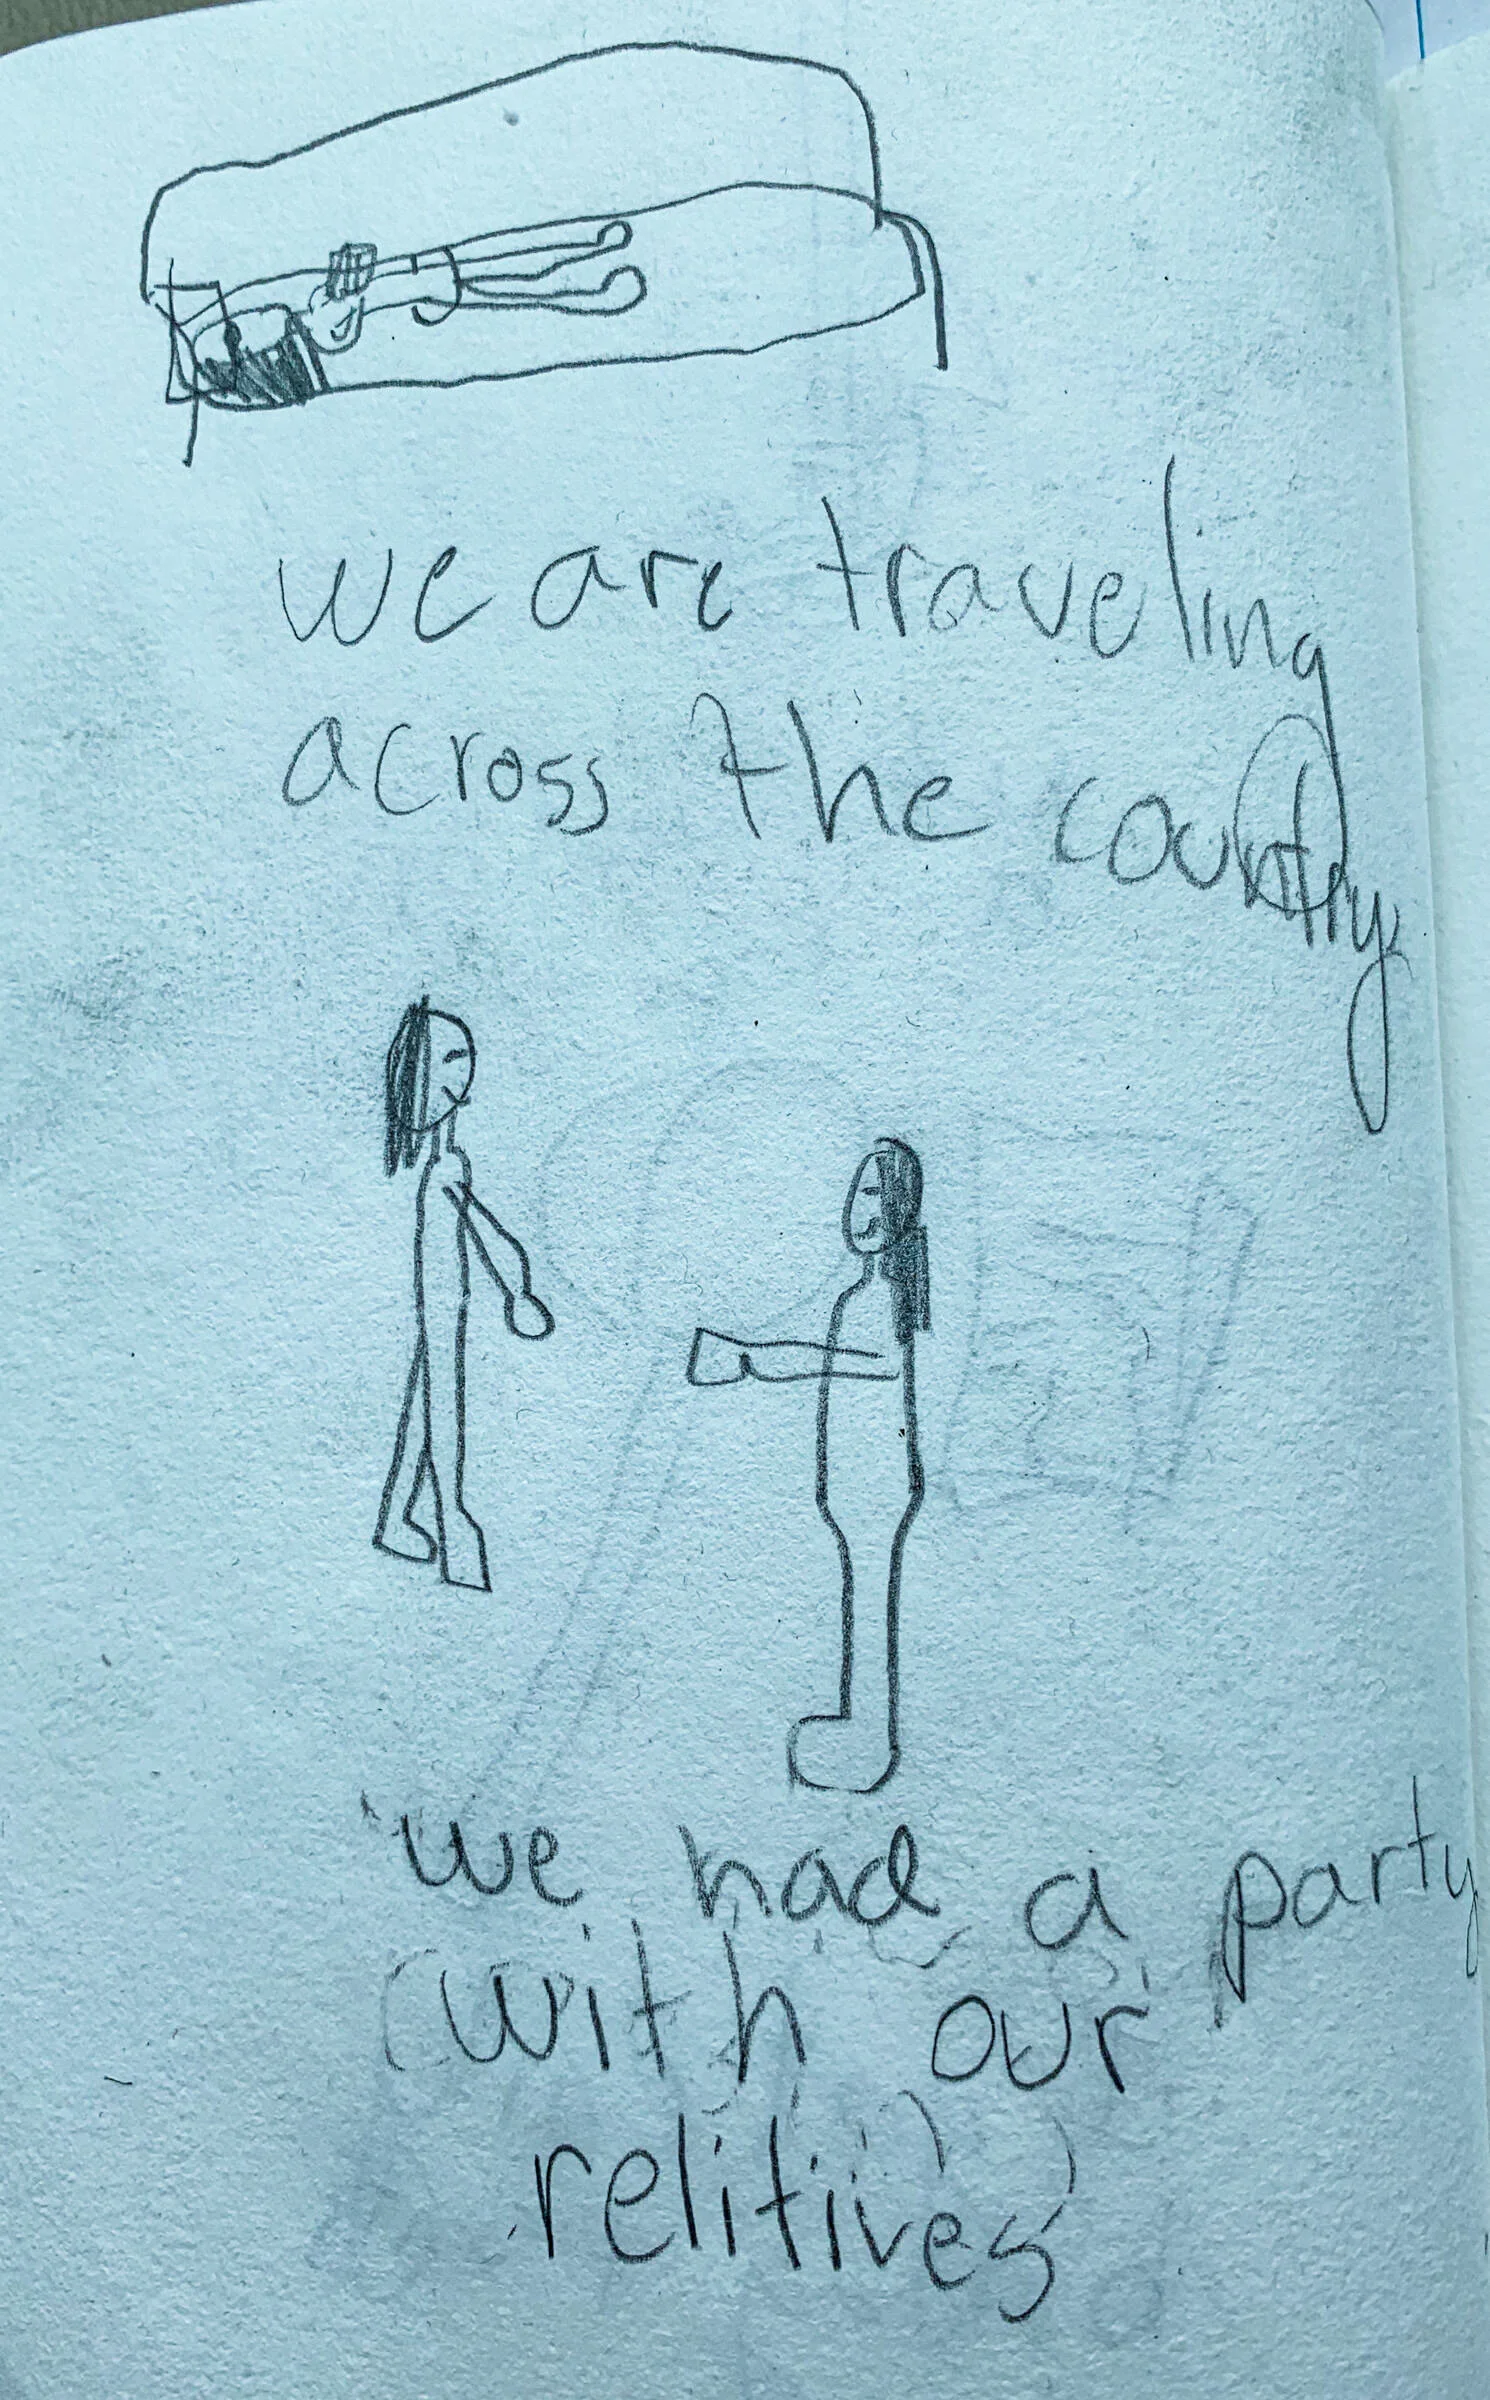 we are traveling
across the country
we had a party
with our
relitives